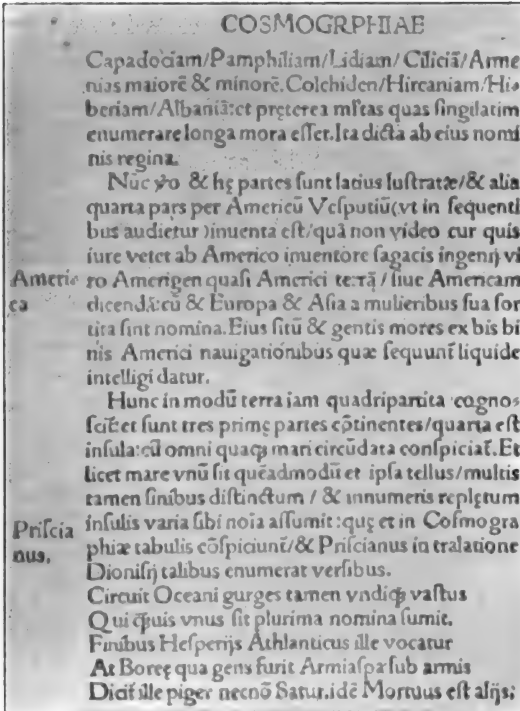 COSMOGRPHIAE
Capadociam/Pamphiliam/Lidiam/Ciliciã/Arme
nias maiorẽ & minorẽ.Colchiden/Hircaniam/Hi-
beriam/Albaniã:et pręterea mĺtas quas ſingilatim
enumerare longa mora eſſet.Ita dicta ab eius nomi
nis regina.
Nũc ꝟo & hę partes ſunt latius luſtratæ/& alia
quarta pars per Americũ Veſputiũ(vt in ſequenti
bus audietur)inuenta eſt/quã non video cur quis
iure vetet ab Americo inuentore ſagacis ingenij vi
Ameri- ro Amerigen quaſi Americi terrã/ſiue Americam
ca dicendã:cũ & Europa & Aſia a mulieribus ſua ſor
tita ſint nomina.Eius ſitũ & gentis mores ex bis bi
nis Americi nauigationibus quæ ſequunt̃ liquide
intelligi datur.
Hunc in modũ terra iam quadripartita cognoſ-
cit̃:et ſunt tres primę partes cõtinentes/quarta eſt
inſula:cũ omni quaqꝫ mari circũdata conſpiciat̃.Et
licet mare vnũ ſit quẽadmodũ et ipſa tellus/multis
tamen ſinibus diſtinctum/& innumeris repletum
Priſcia inſulis varia ſibi noĩa aſſumit:quę et in Coſmogra
nus. phiæ tabulis cõſpiciunt̃/& Priſcianus in tralatione
Dioniſij talibus enumerat verſibus.
Circuit Oceani gurges tamen vndiqꝫ vaſtus
Qui ꝗ̃uis vnus ſit plurima nomina ſumit.
Finibus Heſperijs Athlanticus ille vocatur
At Boreę qua gens furit Armiaſpa ſub armis
Dicit̃ ille piger necnõ Satur.idẽ Mortuus eſt alijs;